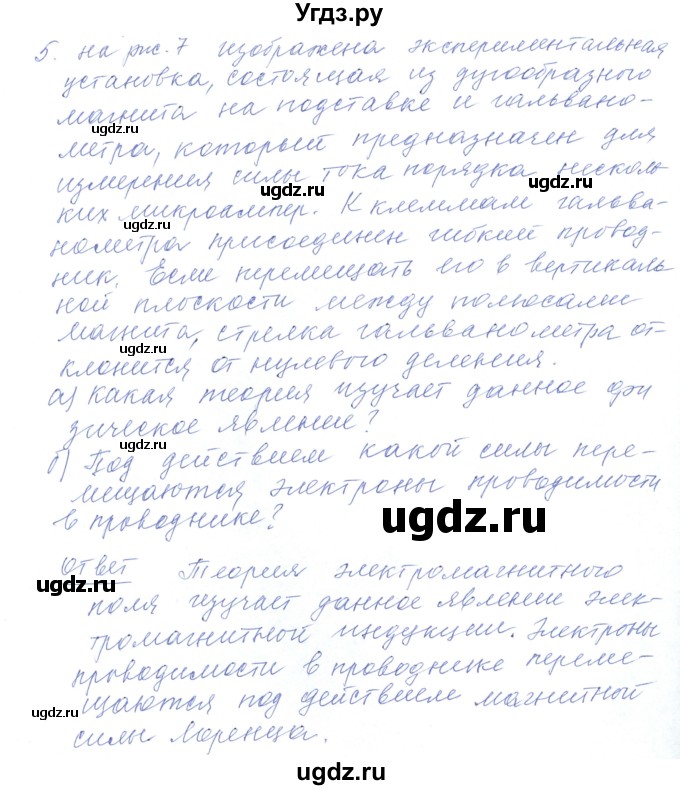 Угдз.ру
5. на рис. 7 изображена экспериментальная
установка, состоящая из дугообразного
магнита на подставке и гальвано-
ugdz.ru
метра, который предназначен для
ugdz.ru
измерения силы тока порядка несколь-
ugdz.ru
ugdz.ru
ких микроампер. К клеммам гальва-
нометра присоединен гибкий провод-
ник. Если перемещать его в вертикаль-
ной плоскости между полюсами
магнита, стрелка гальванометра от-
ugdz.ru
клонится от нулевого деления.
а) Какая теория изучает данное фи
зическое явление?
ugdz.ru
б) Под действием какой силы пере-
мещаются электроны проводимости
в проводнике?
ugdz.ru
Ответ Теория электромагнитного
ugdz.ru
поля изучает данное явление элек-
тромагнитной индукции. Электроны
проводимости в проводнике переме-
щаются под действием магнитной
ugdz.ru
силы Лоренца.
ugdz.ru